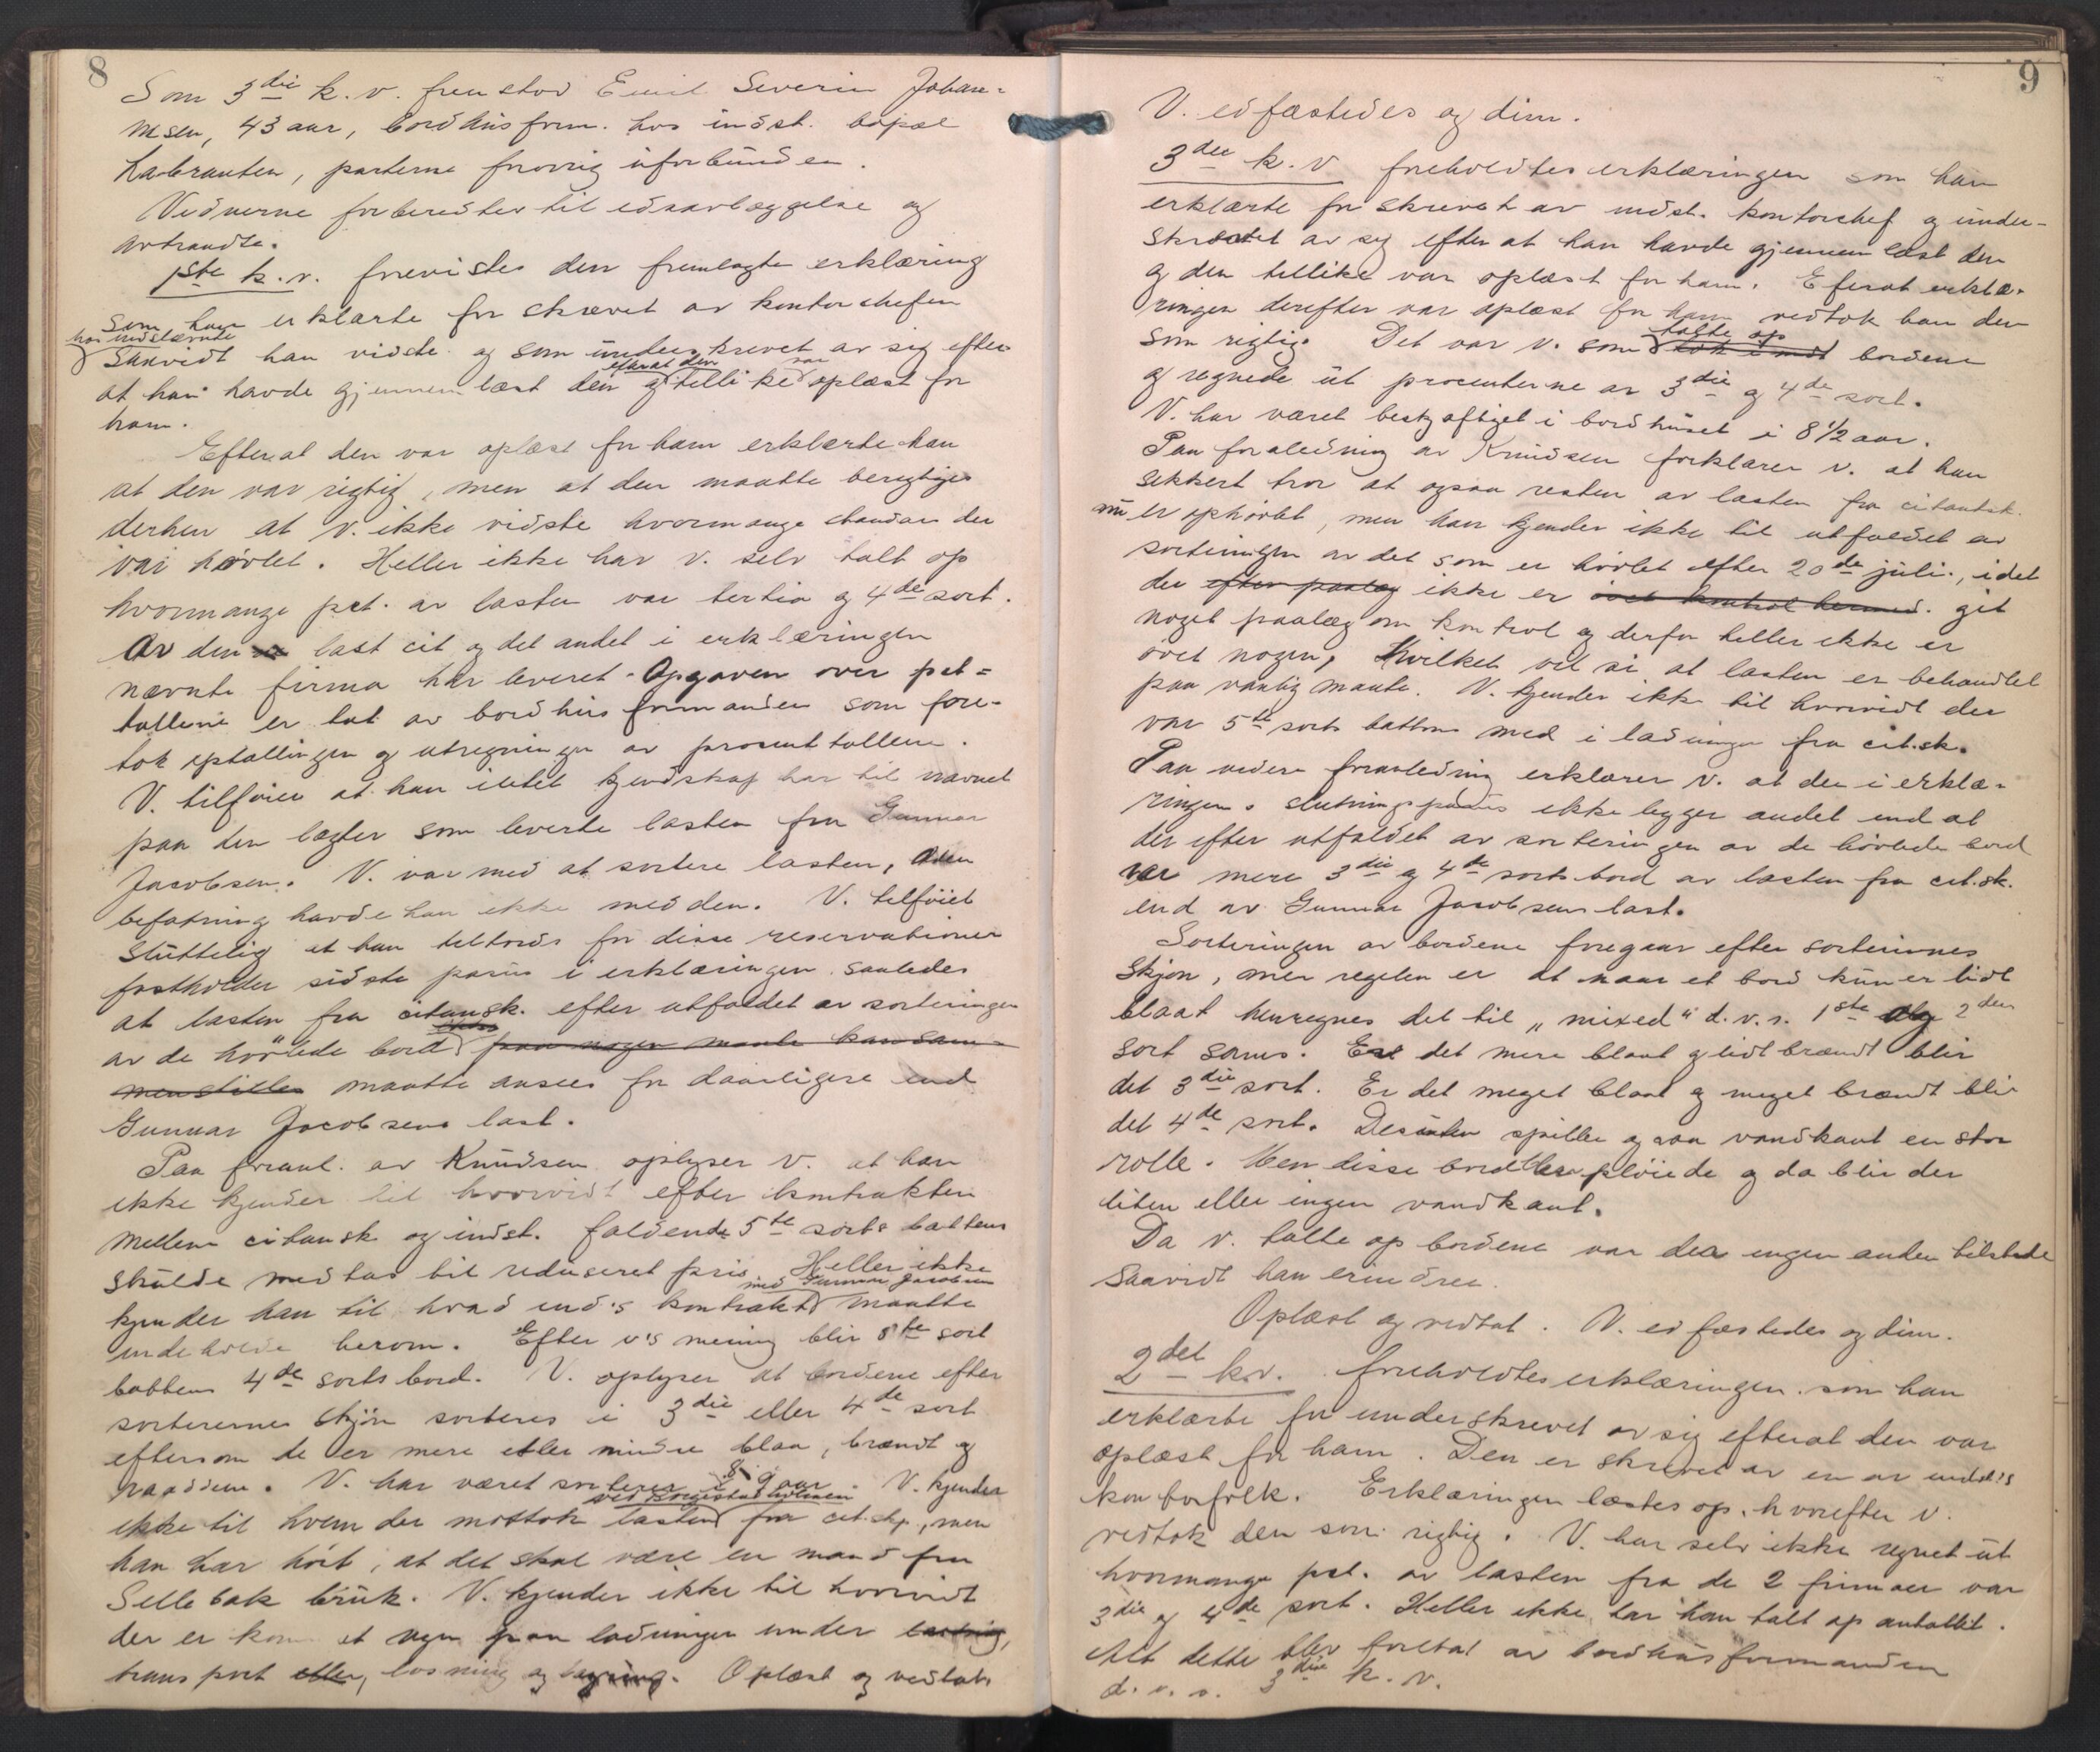 8
Som 3die k. v. fremstod Emil Severin Johan-
nsen, 43 aar, bordhusform. hos indst. bopæl
Labrauten, parterne forøvrig uforbunden.
Vidnerne forberedtes til edsavlæggelse og
avtraadte.
1ste k. v. forevistes den fremlagte erklæring
som han erklærte for skrevet av kontorchefen
hos indstævnte
saavidt han vidste og som underskrevet av sig efter
efterat den var
at han havde gjennemlæst den og tillike oplæst for
ham.
Efterat den var oplæst for ham erklærte han
at den var rigtig, men at den maatte berigtiges
derhen at V. ikke vidste hvormange standar der
var høvlet. Heller ikke har V. selv talt op
hvormange pct. av lasten var tertia og 4de sort.
Av den last cit. og det andet i erklæringen
nævnte firma har leveret. Opgaven over pct=
tallene er tat av bordhusformanden som fore-
tok optællingen og utregningen av procenttallene.
V. tilføier at han intet kjendskap har til navnet
paa den lægter som leverte lasten fra Gunnar
Jacobsen. V. var med at sortere lasten, anden
befatning havde han ikke med den. V. tilføiet
sluttelig at han tiltrods for disse reservationer
fastholder sidste passus i erklæringen saaledes
at lasten fra citansk. efter utfaldet av sorteringen
av de høvlede bord paa nogen maate kan sam-
menstilles maatte ansees for daarligere end
Gunnar Jacobsens last.
Paa foranl. av Knudsen oplyser V. at han
ikke kjender til hvorvidt efter kontrakten
mellem citansk og indst. faldende 5te sorts battens
skulde medtas til reduseret pris. Heller ikke
med Gunnar Jacobsen
kjender han til hvad ind's kontrakt maatte
indeholde herom. Efter v's mening blir 5te sort
battens 4de sorts bord. V. oplyser at bordene efter
sorterernes skjøn sorteres i 3die eller 4de sort
eftersom de er mere eller mindre blaa, brændt og
raadne. V. har været sorterer i 8 á 9 aar. V. kjender
ved Borgestadholmen
ikke til hvem der mottok lasten fra cit.sk., men
han har hørt, at det skal være en mand fra
Sellebak bruk. V. kjender ikke til hvorvidt
der er kommet vær paa ladningen under lastning,
transport eller, losning og lagring. Oplæst og vedtat.
9
V. edfæstedes og dim.
3die k. v. foreholdtes erklæringen som han
erklærte for skrevet av indst. kontorchef og under-
skrevet av sig efter at han havde gjennemlæst den
og den tillike var oplæst for ham. Efterat erklæ-
ringen derefter var oplæst for ham vedtok han den
talte op
som rigtig. Det var V. som tok imot bordene
og regnede ut procenterne av 3die og 4de sort.
V. har været beskjæftiget i bordhuset i 8 1/2 aar.
Paa foraledning av Knudsen forklarer v. at han
sikkert tror at ogsaa resten av lasten fra citantsk.
nu er ophøvlet, men han kjender ikke til utfaldet av
sorteringen av det som er høvlet efter 20de juli, idet
der efter paalæg ikke er øvet kontrol hermed. git
noget paalæg om kontrol og derfor heller ikke er
øvet nogen, hvilket vil si at lasten er behandlet
paa vanlig maate. V. kjender ikke til hvorvidt der
var 5te sorts battens med i ladningen fra cit.sk.
Paa videre foranledning erklærer V. at der i erklæ-
ringens slutningspassus ikke legges andet end at
der efter utfaldet av sorteringen av de høvlede bord
var mere 3die og 4de sorts bord av lasten fra cit.sk.
end av Gunnar Jacobsens last.
Sorteringen av bordene foregaar efter sorterernes
skjøn, men regelen er at naar et bord kun er lidt
blaat henregnes det til „mixed" d. v. s. 1ste og 2den
sort sams. Er det mere blaat og lidt brændt blir
det 3die sort. Er det meget blaat og meget brændt blir
det 4de sort. Desuten spiller ogsaa vandkant en stor
rolle. Men disse bord blev pløiede og da blir der
liten eller ingen vandkant.
Da V. talte op bordene var der ingen anden tilstede
saavidt han erindrer.
Oplæst og vedtat. V. edfæstedes og dim.
2det k.v. foreholdtes erklæringen som han
erklærte for underskrevet av sig efterat den var
oplæst for ham. Den er skrevet av en av indst's
kontorfolk. Erklæringen læstes op, hvorefter V.
vedtok den som rigtig. V. har selv ikke regnet ut
hvormange pct. av lasten fra de 2 firmaer var
3die og 4de sort. Heller ikke har han talt op antallet.
Alt dette blev foretat av bordhusformanden
d. v. s. 3die k. v.